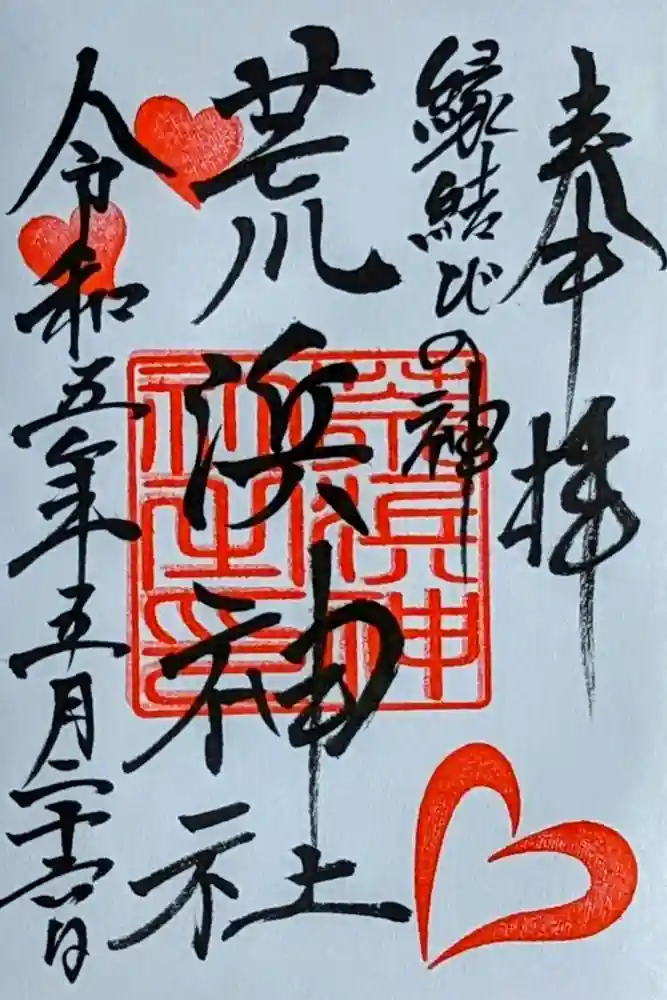 奉拝
縁結びの神
荒浜神社
荒浜神
社之印
令和五年五月二十六日